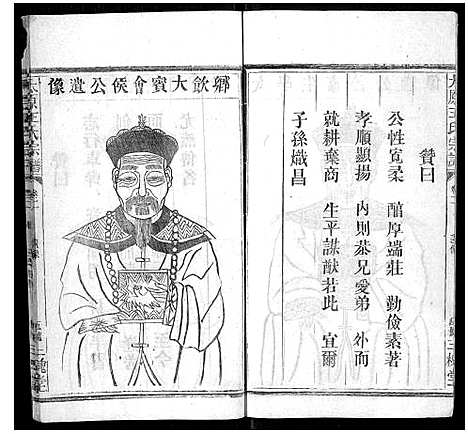 太原王氏宗譜
贊曰
公性寬柔 醕厚端莊 勤儉素著
孝順顯揚 內則恭兄愛弟 外而
就耕棄商 生平謀猷若此 宜爾
子孫熾昌
鄉飲大賓會候公遺像
太原王氏宗譜
三槐堂